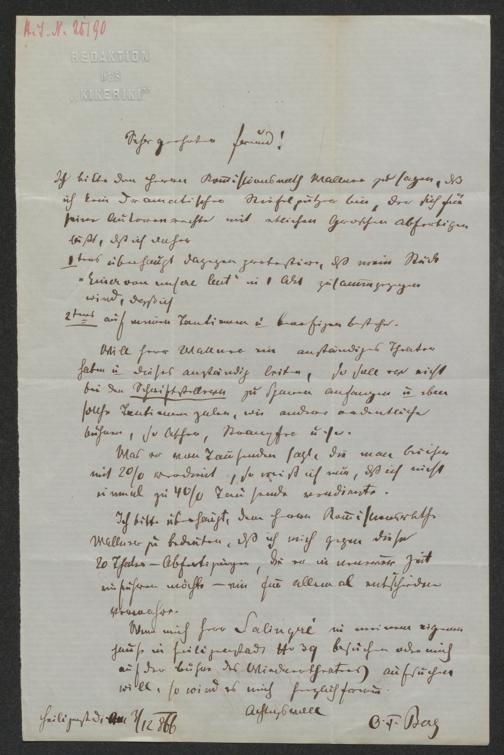 H.I.N. 25190
REDAKTION
DES
„KIKERIKI"
Sehr geehrter Freund!
Ich bitte dem Herrn Kom̄issionsrath Wallner zu sagen, dß
ich kein dramatischer Stiefelputzer bin, der sich für
seine Autorenrechte mit etlichen Groschen abfertigen
läßt, dß ich daher
1tens überhaupt dagegen protestire, dß mein Stück
„Einer von unsere Leut" in 1 Akt zusam̄engezogen
wird, daß ich
2tens auf meinen Tantiemen u bestehe.
Will Herr Wallner ein anständiges Theater
haben u dieses anständig leiten, so soll er nicht
bei den Schriftstellern zu sparen anfangen u eben
solche Tantiemen zalen, wie andere ordentliche
Bühnen, so Ascher, Strampfer u.s.w.
Was er von Tausenden sagt, die man bei ihm
mit 2% verdient, so weiß ich nur, dß ich nicht
einmal zu 4% Tausende verdiente.
Ich bitte überhaupt, dem Herrn Kom̄issionsrathe
Wallner zu bedeuten, dß ich mich gegen diese
20 Thaler-Abfertigungen, die er in neuerer Zeit
einführen möchte – ein für allemal entschieden
verwahre.
Wenn mich Herr Salingré in meinem eigenen
Hause in Heiligenstadt Nr 39 besuchen oder mich
auf der Bühne des Wiednertheaters aufsuchen
will, so wird es mich herzlich freuen.
Achtungsvoll
Heiligenstadt, am /12 866
O. F. Berg